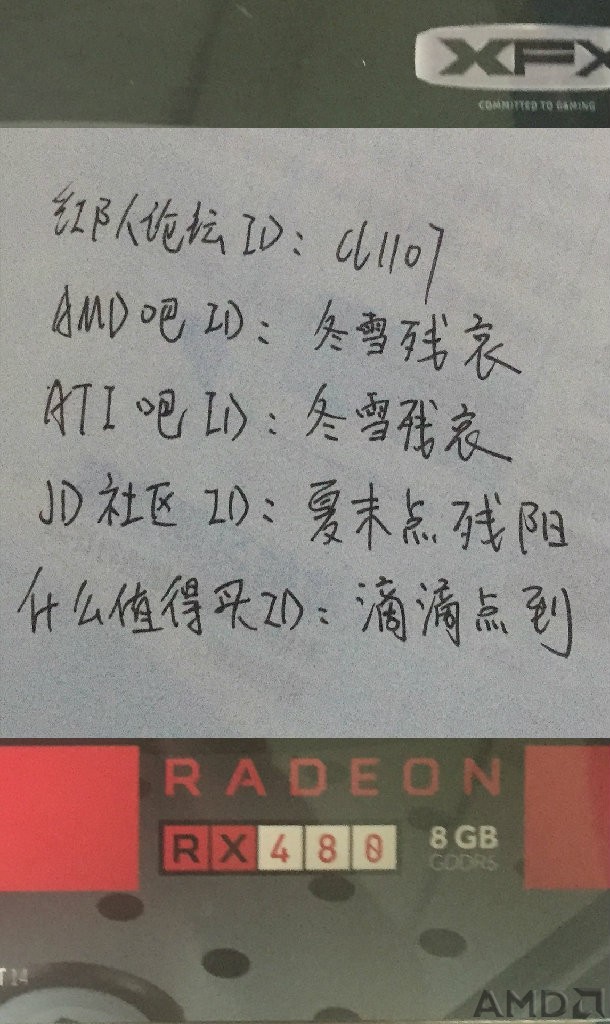 XFX
COMMITTED TO GAMING
红队论坛 ID: cll107
AMD吧 ID: 冬雪残哀
ATI吧 ID: 冬雪残哀
JD社区 ID: 夏末点残阳
什么值得买ID: 滴滴点到
RADEON
RX 480 8 GB
GDDR5
AMD